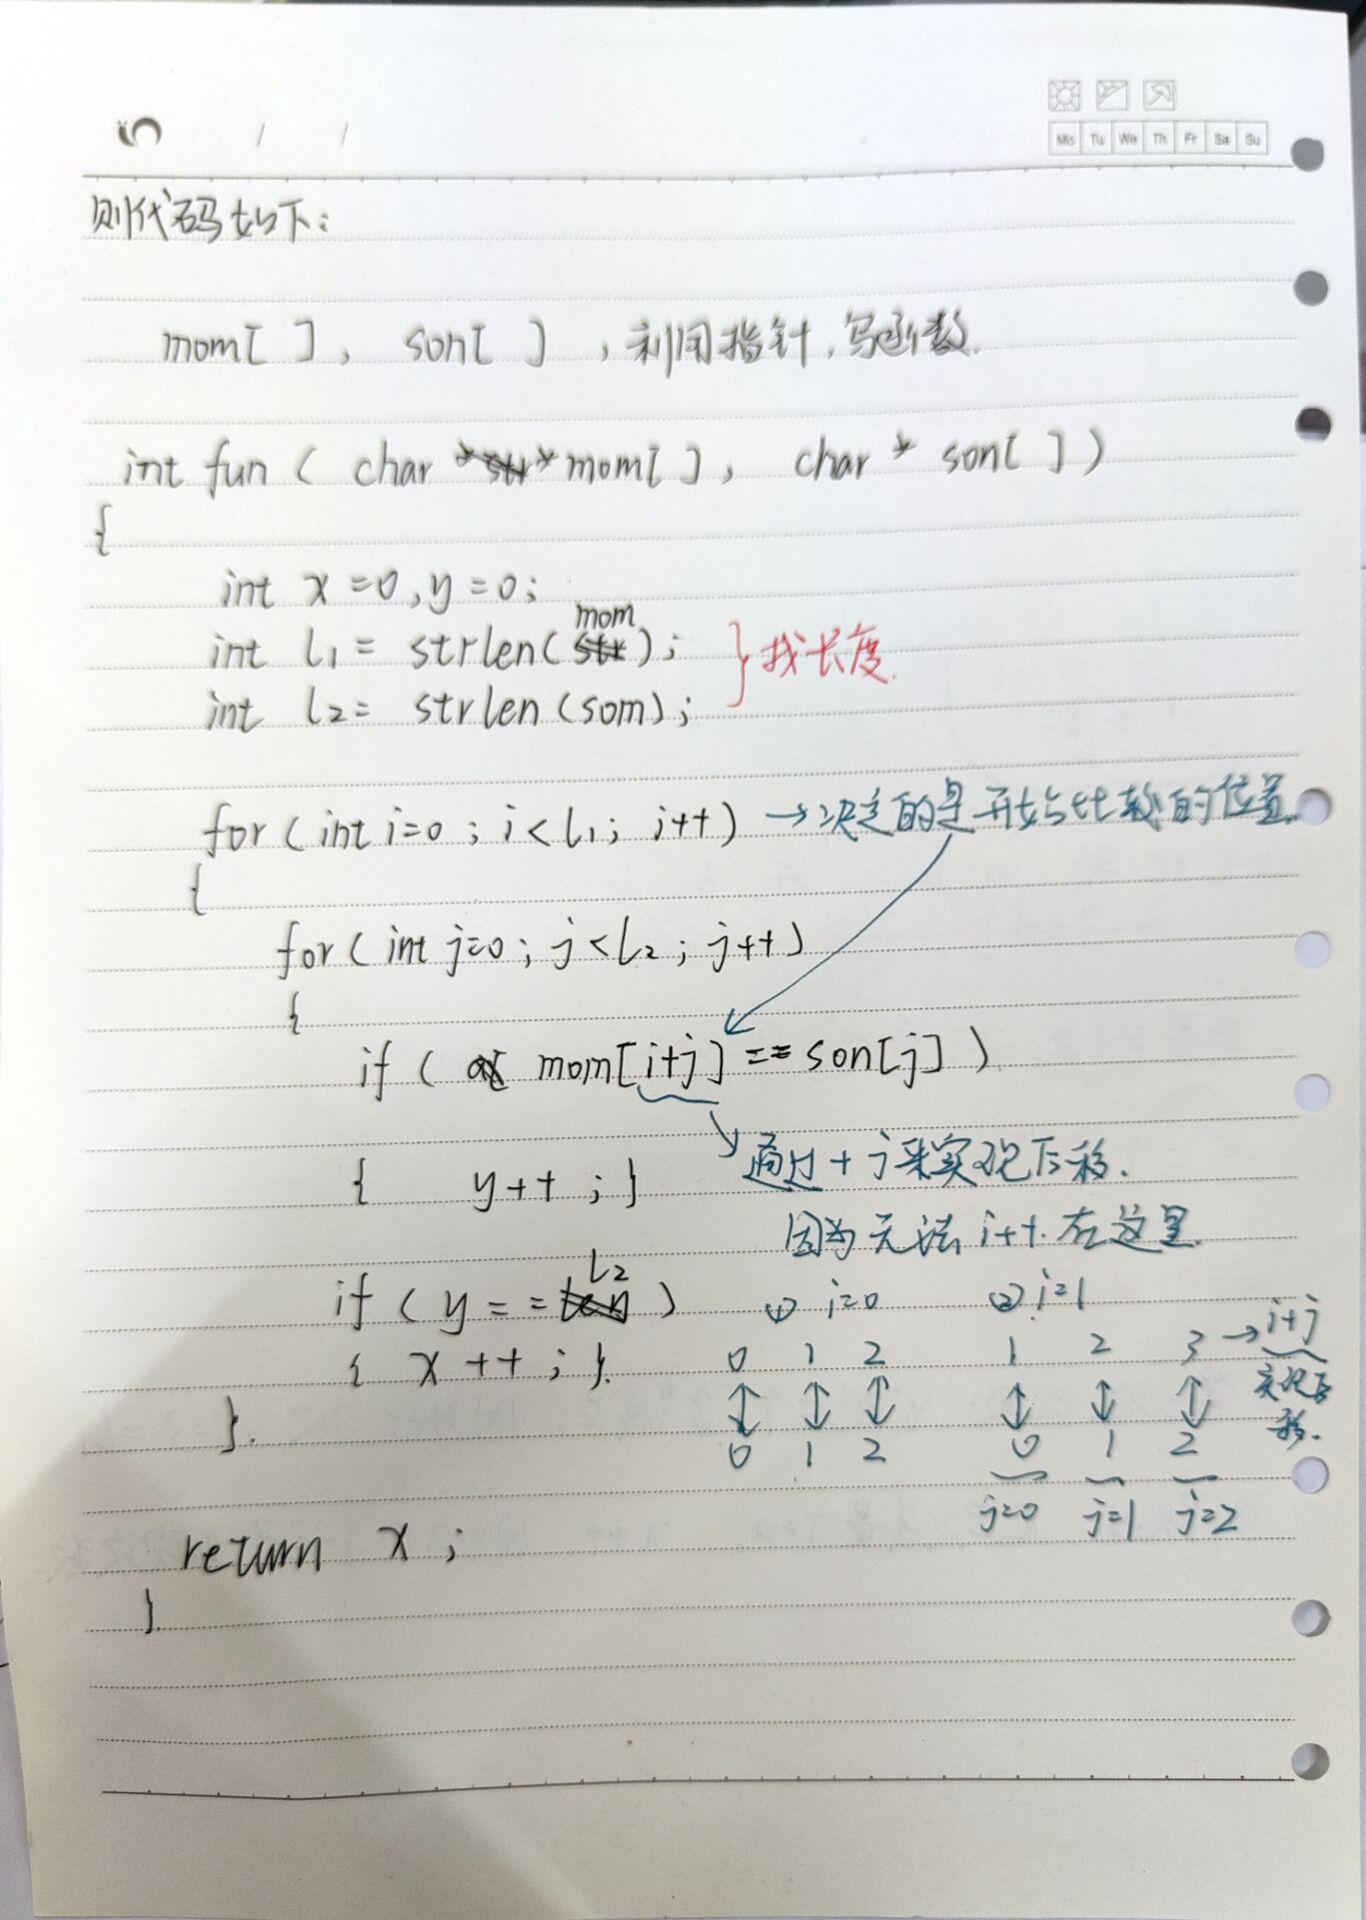 5 / /
Mo Tu We Th Fr Sa Su
则代码如下:
mom[ ], son[ ],利用指针,写函数.
int fun ( char * mom[ ], char * son[ ] )
{
int x=0,y=0;
int l1= strlen(mom);
int l2= strlen(som);
}找长度.
for(int i=0; i<l1; i++) →决定的是开始比较的位置.
{
for(int j=0; j<l2; j++)
{
if ( mom[i+j]==son[j])
{ y++;}
通过+j来实现后移.
因为无法i++在这里.
if(y==l2)
{ x++;}.
}.
① i=0 ② i=1
0 1 2 1 2 3 →i+j
实现后
移.
0 1 2 0 1 2
j=0 j=1 j=2
return x;
}.